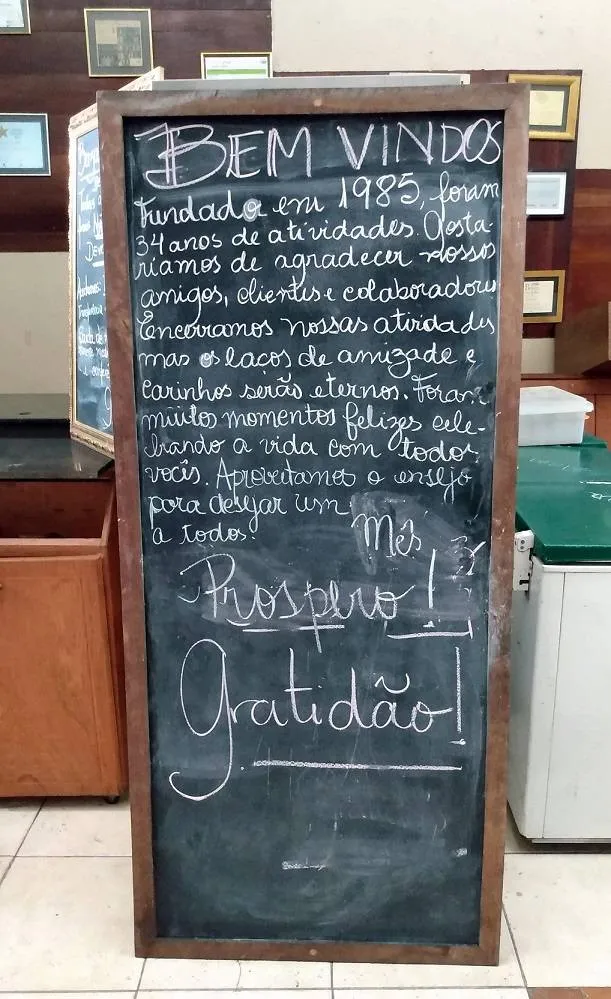 BEM VINDOS
Fundada em 1985, foram
34 anos de atividades. Gosta-
ríamos de agradecer nossos
amigos, clientes e colaboradores
Encerramos nossas atividades
mas os laços de amizade e
carinhos serão eternos. Foram
muitos momentos felizes cele-
brando a vida com todos
vocês. Aproveitamos o ensejo
para desejar um
a todos.
Mês
Prospero!
Gratidão!